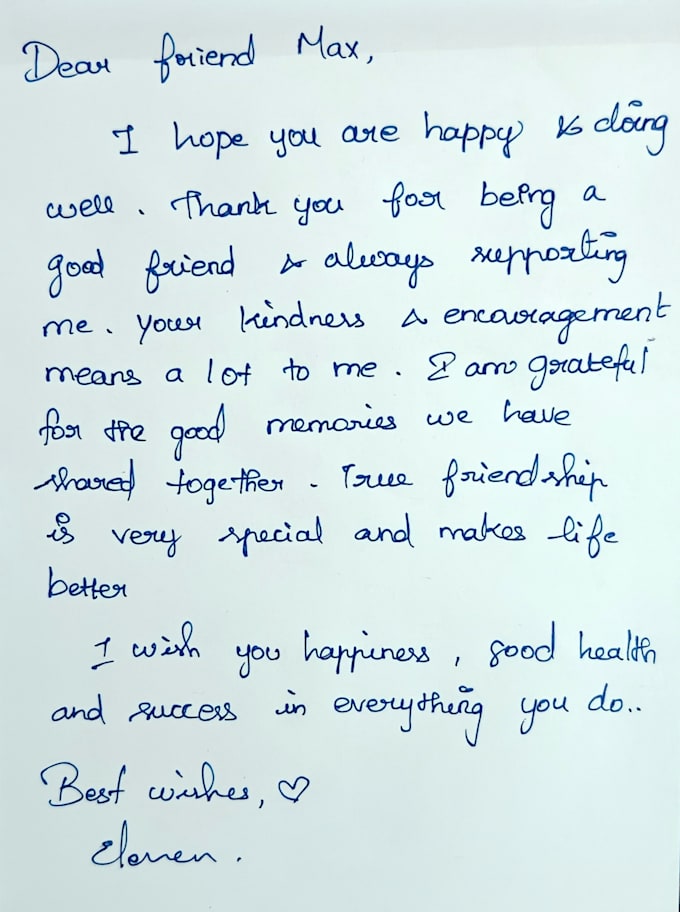 Dear friend Max,
I hope you are happy & doing
well. Thank you for being a
good friend & always supporting
me. Your kindness & encouragement
means a lot to me. I am grateful
for the good memories we have
shared together. True friendship
is very special and makes life
better
I wish you happiness, good health
and success in everything you do..
Best wishes, ♡
Eleven.